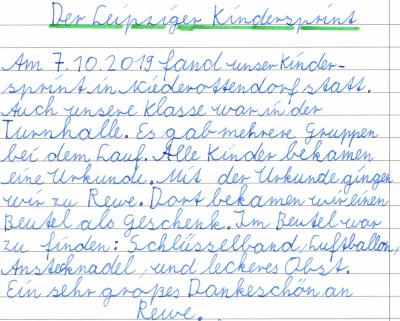 Der Leipziger Kindersprint
Am 7.10.2019 fand unser Kinder-
sprint in Niederottendorf statt.
Auch unsere Klasse war in der
Turnhalle. Es gab mehrere Gruppen
bei dem Lauf. Alle Kinder bekamen
eine Urkunde. Mit der Urkunde gingen
wir zu Rewe. Dort bekamen wir einen
Beutel als Geschenk. Im Beutel war
zu finden: Schlüsselband, Luftballon,
Anstecknadel, und leckeres Obst.
Ein sehr großes Dankeschön an
Rewe.